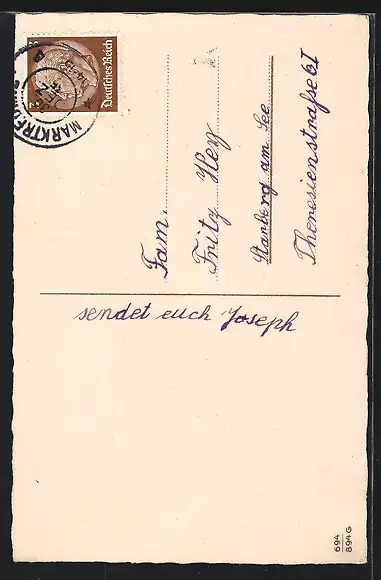 sendet euch Joseph
Fam.
Fritz Hey
Starberg am See
Theresienstraße 6I
Deutsches Reich
3
MARKTRE
694
894 G